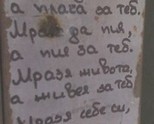 а плача за теб.
Мразя да пия,
а пия за теб.
Мразя живота,
а живея за теб.
Мразя себе си,